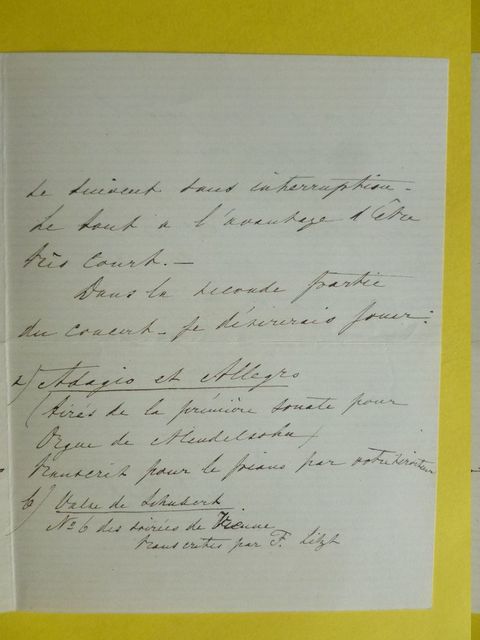 se suivent sans interruption.
Le tout a l'avantage d'être
très court. —
Dans la seconde partie
du concert je désirerais jouer:
a) Adagio et Allegro
(tirés de la prémière sonate pour
Orgue de Mendelsohn)
transcrit pour le piano par votre serviteur
b) Valse de Schubert
No 6 des soirées de Vienne
transcrites par F. Litzt